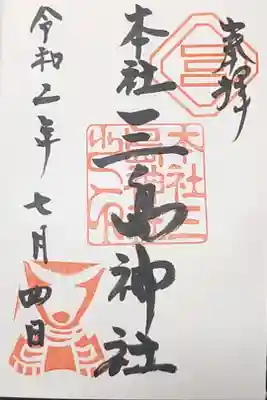 奉拝
三
本社三島神社
本社三島神社之印
令和二年七月四日